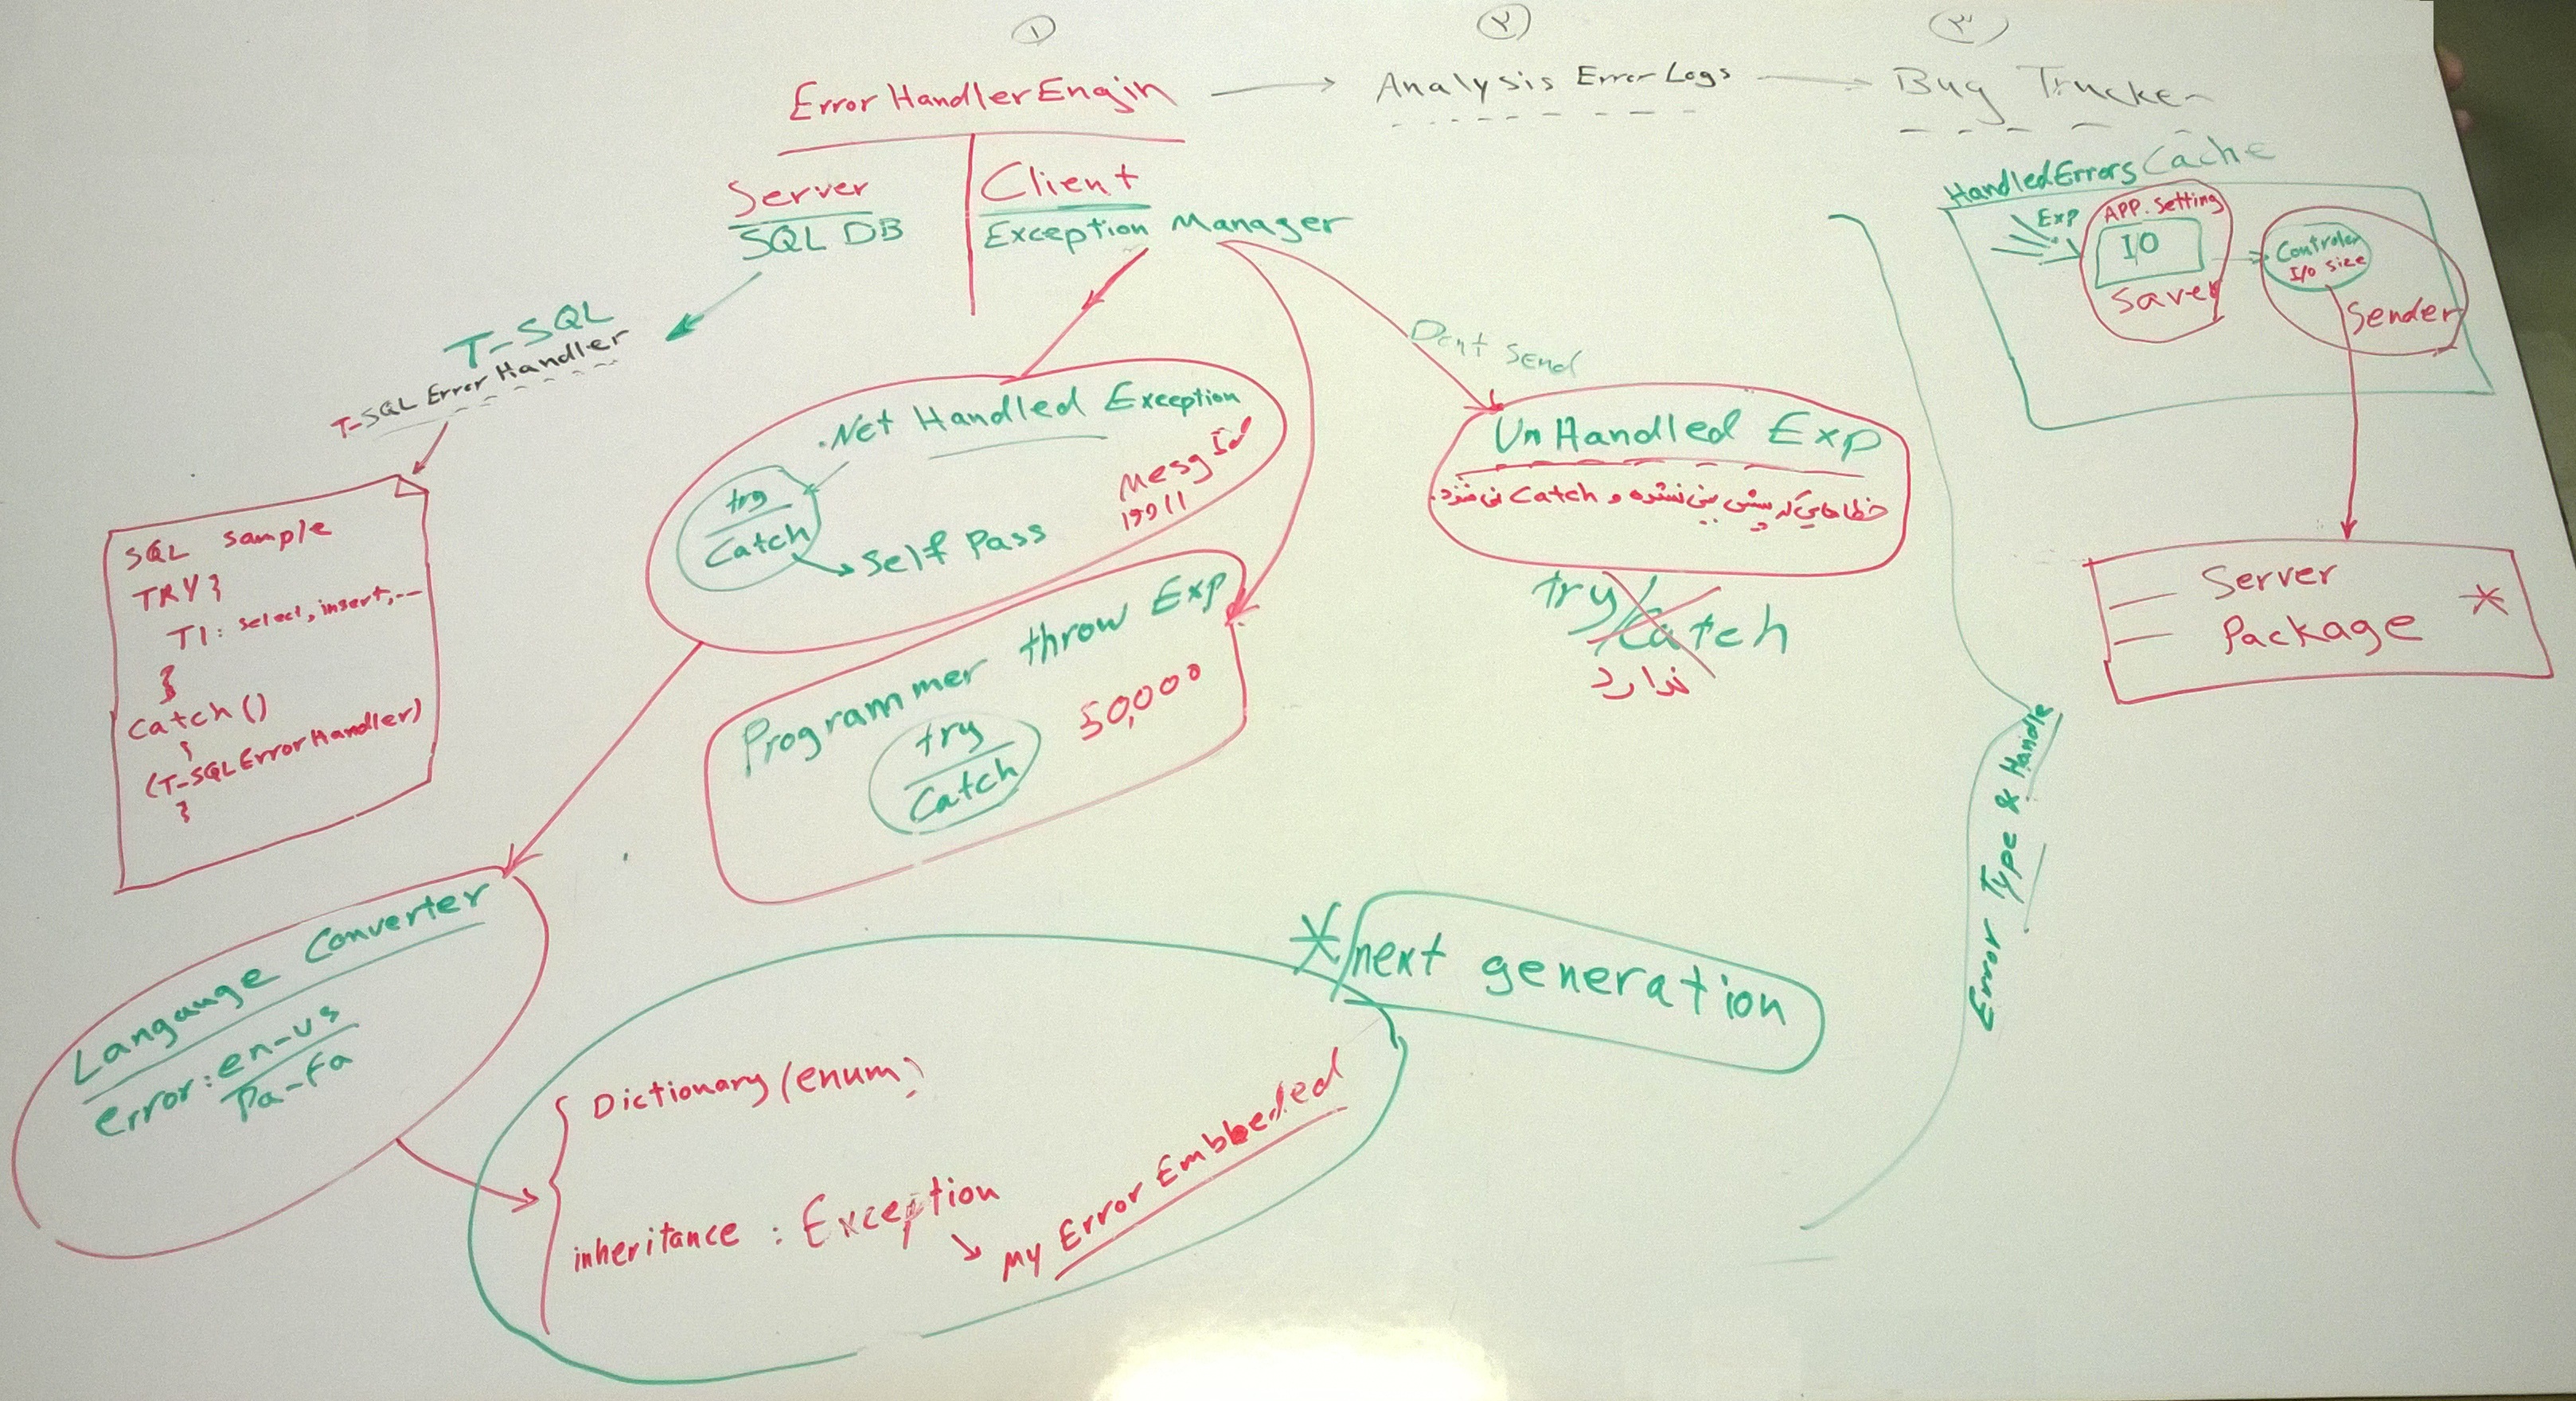 ۱
۲
۳
Error Handler Engin
Analysis Error Logs
Bug Trucker
Server
SQL DB
Client
Exception Manager
T-SQL
T-SQL Error Handler
SQL sample
TRY }
T1: select, insert, --
}
Catch ()
}
(T-SQL Error Handler)
}
.Net Handled Exception
try
Catch
Self Pass
Mesg Id
Programmer throw Exp
try
Catch
50,000
Dont Send
UnHandled Exp
خطاهایی که پیش بینی نشده و Catch نمی شود.
try/Catch
ندارد
Handled Errors Cache
Exp
APP. Setting
I/O
Saver
Controler
I/O size
Sender
Server
Package *
Error Type & Handle
Langauge Converter
error: en-us
Pa-fa
* next generation
Dictionary (enum)
inheritance : Exception
My Error Embbeded